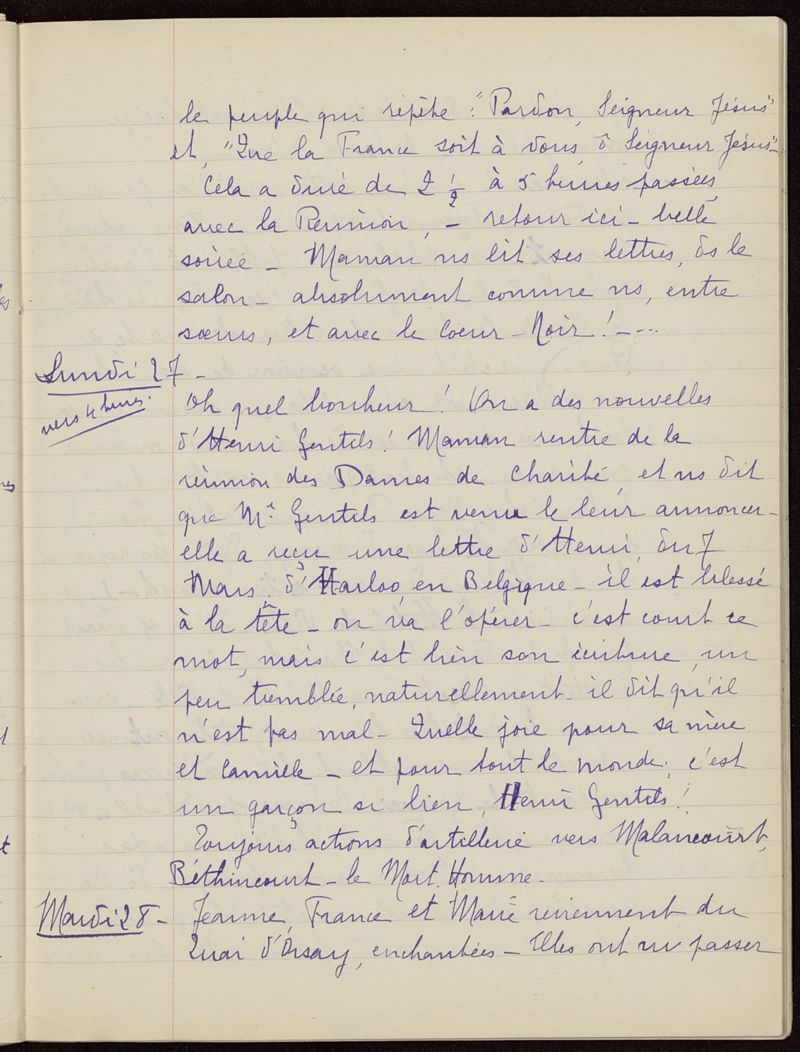 le peuple qui répète : "Pardon, Seigneur Jésus"
et, "Que la France soit à vous, ô Seigneur Jésus" -
Cela a duré de 2 ½ à 5 heures passées,
avec la Réunion, - retour ici - belle
soirée - Maman ns lit ses lettres, ds le
salon - absolument comme ns, entre
sœurs, et avec le Coeur - Noir ! - ...
Lundi 27 -
vers 4 heures.
Oh quel bonheur ! On a des nouvelles
d'Henri Gentils ! Maman rentre de la
réunion des Dames de Charité, et ns dit
que Me Gentils est venu le leur annoncer -
elle a reçu une lettre d'Henri, du 7
Mars, d'Harloo, en Belgique - il est blessé
à la tête - on va l'opérer - c'est court ce
mot, mais c'est bien son écriture, un
peu tremblée, naturellement - il dit qu'il
n'est pas mal - Quelle joie pour sa mère
et Camille - et pour tout le monde ; c'est
un garçon si bien, Henri Gentils !
Toujours actions d'artillerie vers Malancourt,
Béthincourt - le Mort. Homme -
Mardi 28 - Jeanne, France et Marie reviennent du
Quai d'Orsay, enchantées - Elles ont vu passer